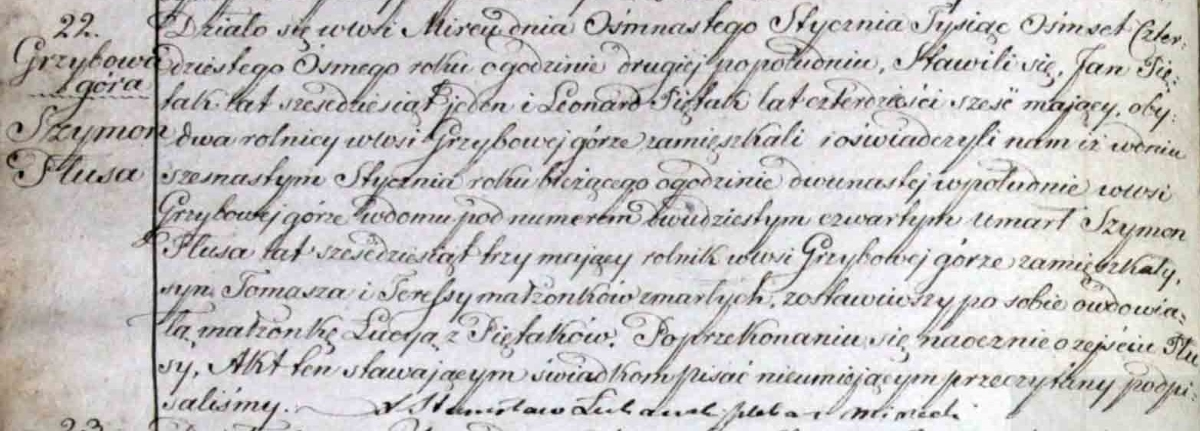 22.
Grzybowa
góra
Szymon
Plusa
Działo się w wsi Mircu dnia Ośmnastego Stycznia Tysiąc Ośmset Czter-
dziestego Ósmego roku o godzinie drugiej popołudniu. Stawili się, Jan Pię-
tak lat sześcdziesiąt jeden i Leonard Piętak lat czterdzieści sześć mający, oby-
dwa rolnicy w wsi Grzybowej górze zamięszkali i oświadczyli nam iż w dniu
szesnastym Stycznia roku bieżącego o godzinie dwunastej w południe w wsi
Grzybowej górze w domu pod numerem dwudziestym czwartym umarł Szymon
Plusa lat sześćdziesiąt trzy mający rolnik w wsi Grzybowej górze zamięszkały,
syn Tomasza i Teressy małżonków zmarłych, zostawiwszy po sobie owdowia-
łą małżonkę Lucyją z Piętaków. Po przekonaniu się naocznie o zejściu Plu
sy, Akt ten stawającym świadkom pisać nieumiejącym przeczytany podpi-
saliśmy.
X Stanisław pleban mirecki
23.